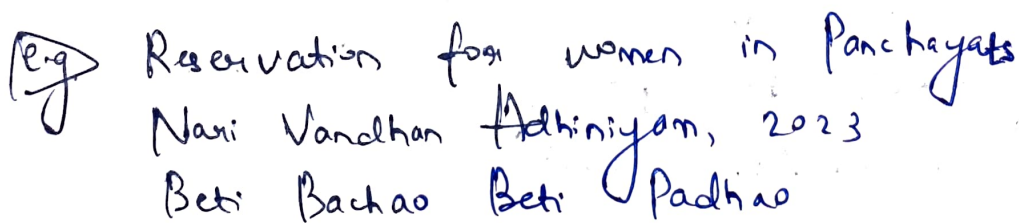 e.g Reservation for women in Panchayats
Nari Vandhan Adhiniyam, 2023
Beti Bachao Beti Padhao